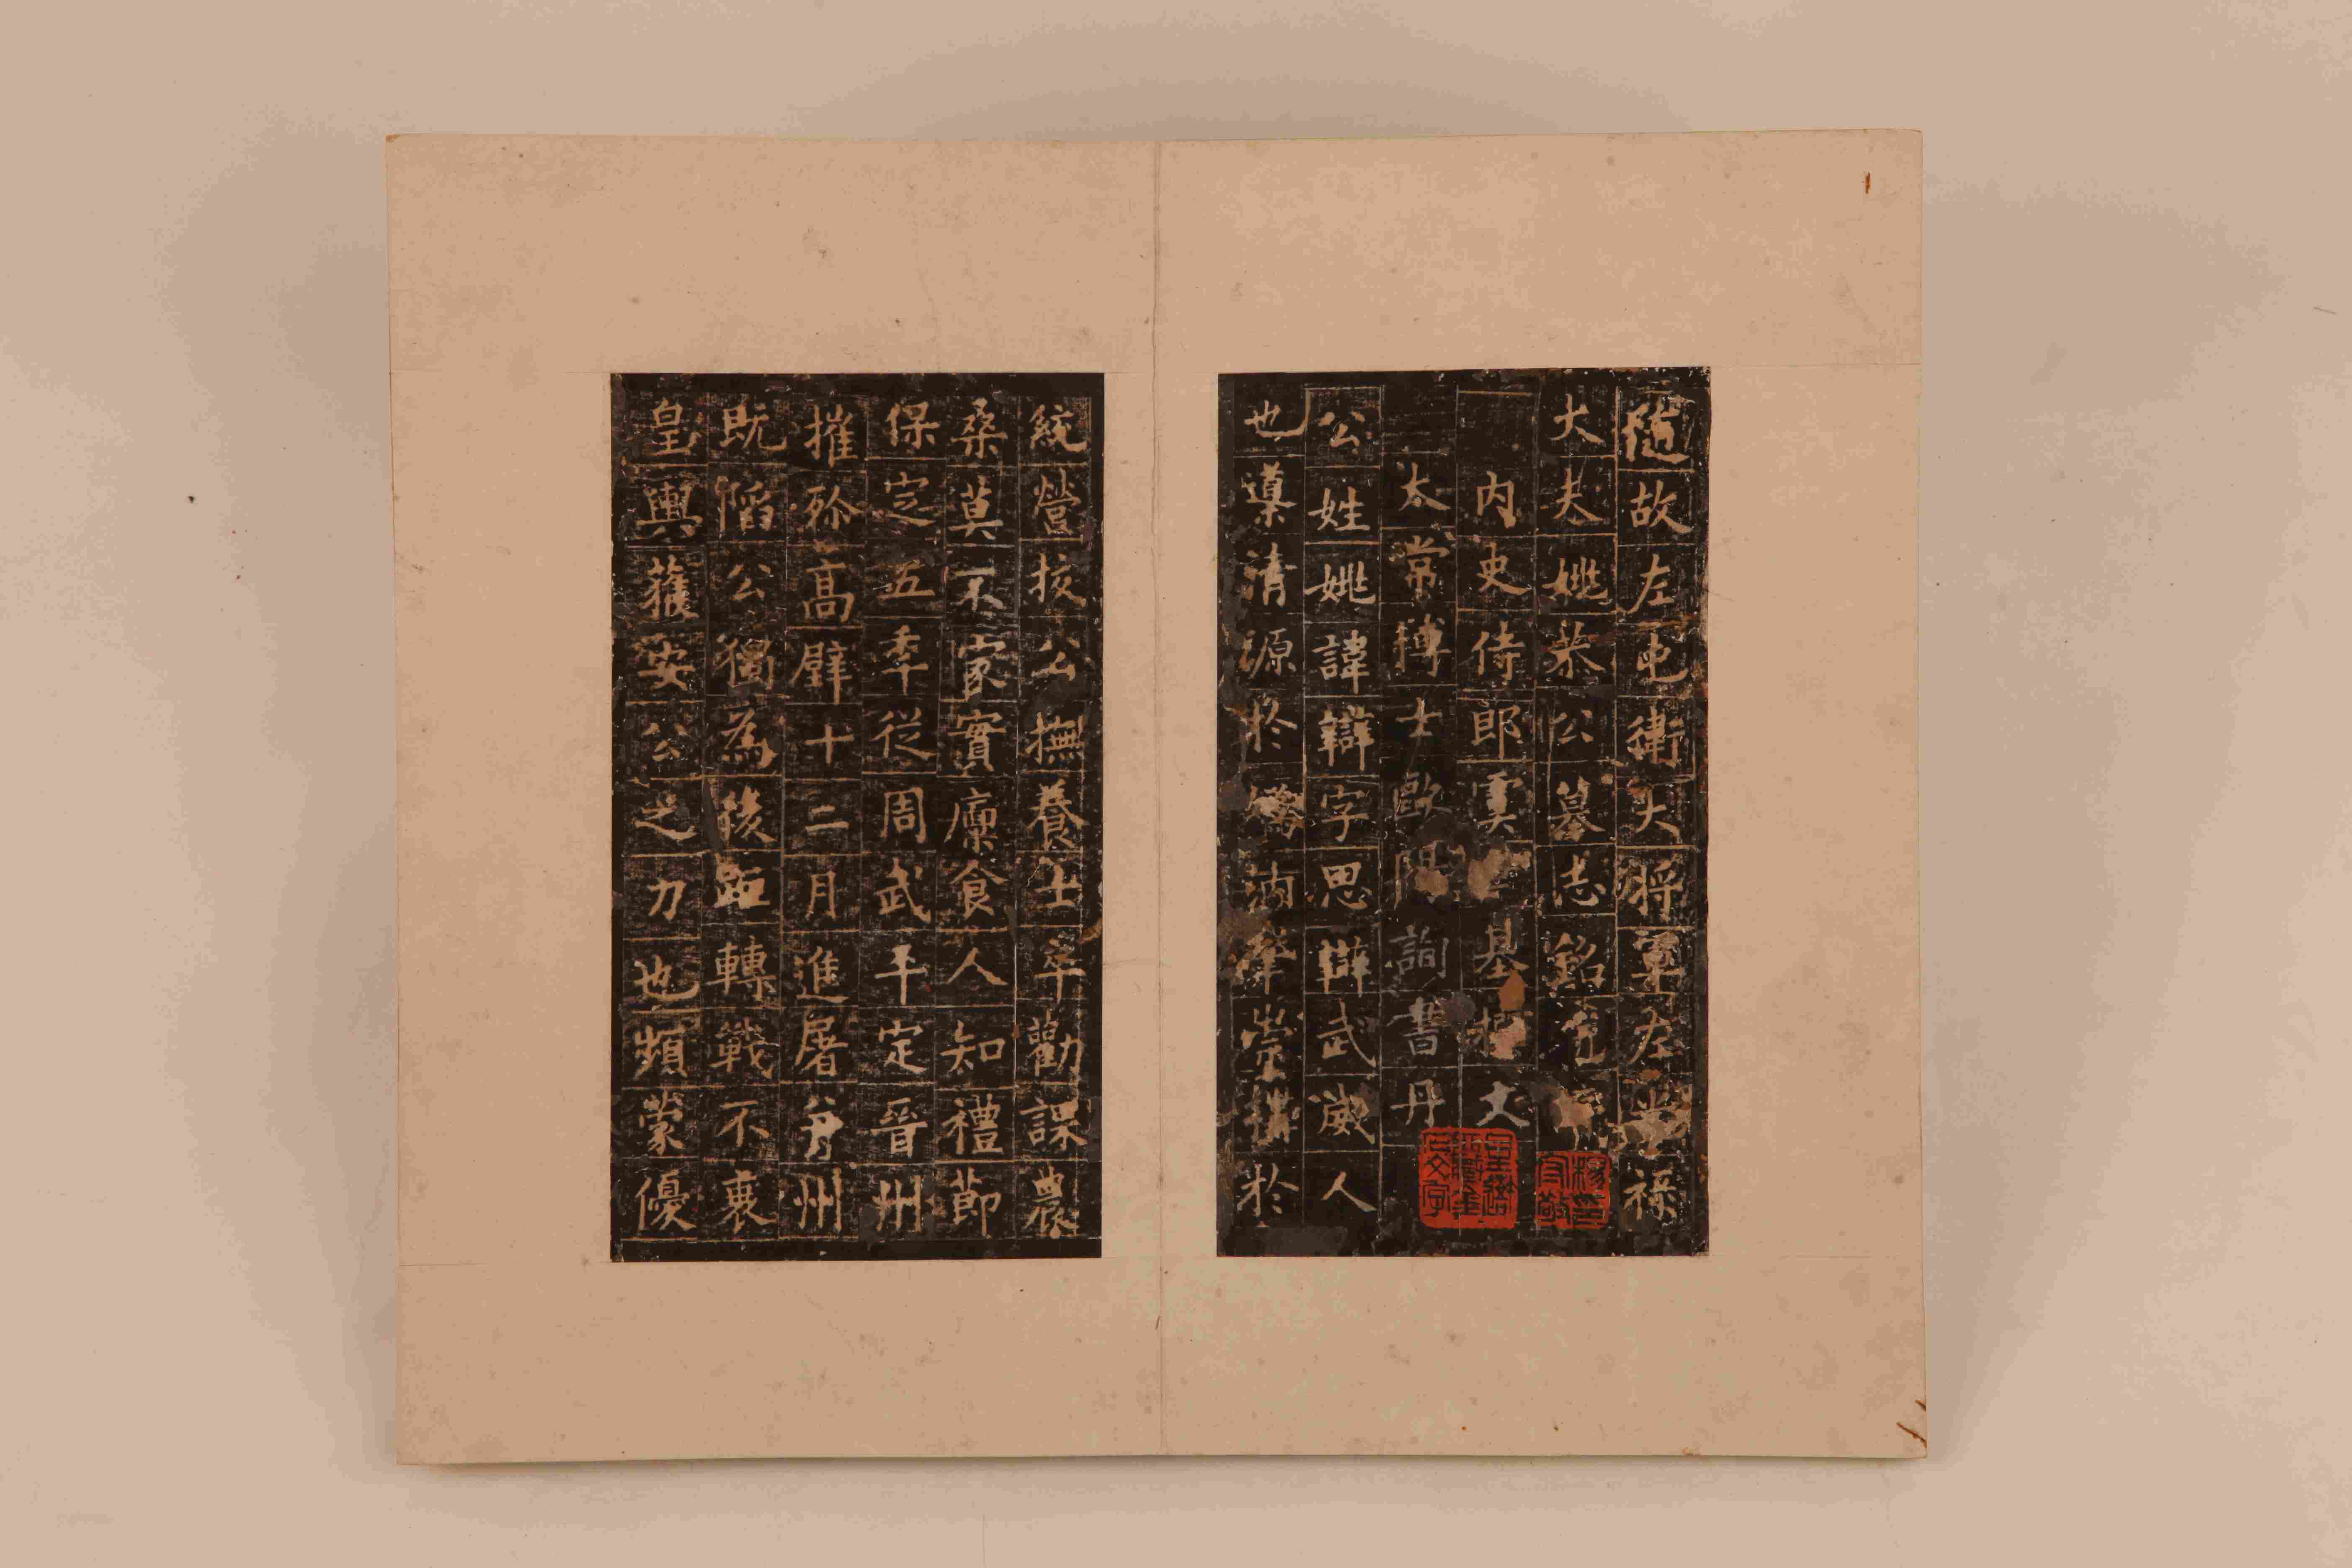 隨故左屯衛大將軍左祿
大夫姚恭公墓志銘并序
内史侍郎虞世基撰文
太常博士歐陽詢書丹
公姓姚諱辯字思辯武威人
也導清源於嬀汭肇崇構於
統營校公撫養士卒勸課農
桑莫不家實廩食人知禮節
保定五年從周武平定晉州
摧殄高壁十二月進屠并州
既陷公獨為後距轉戰不衰
皇輿獲安公之力也頻蒙優